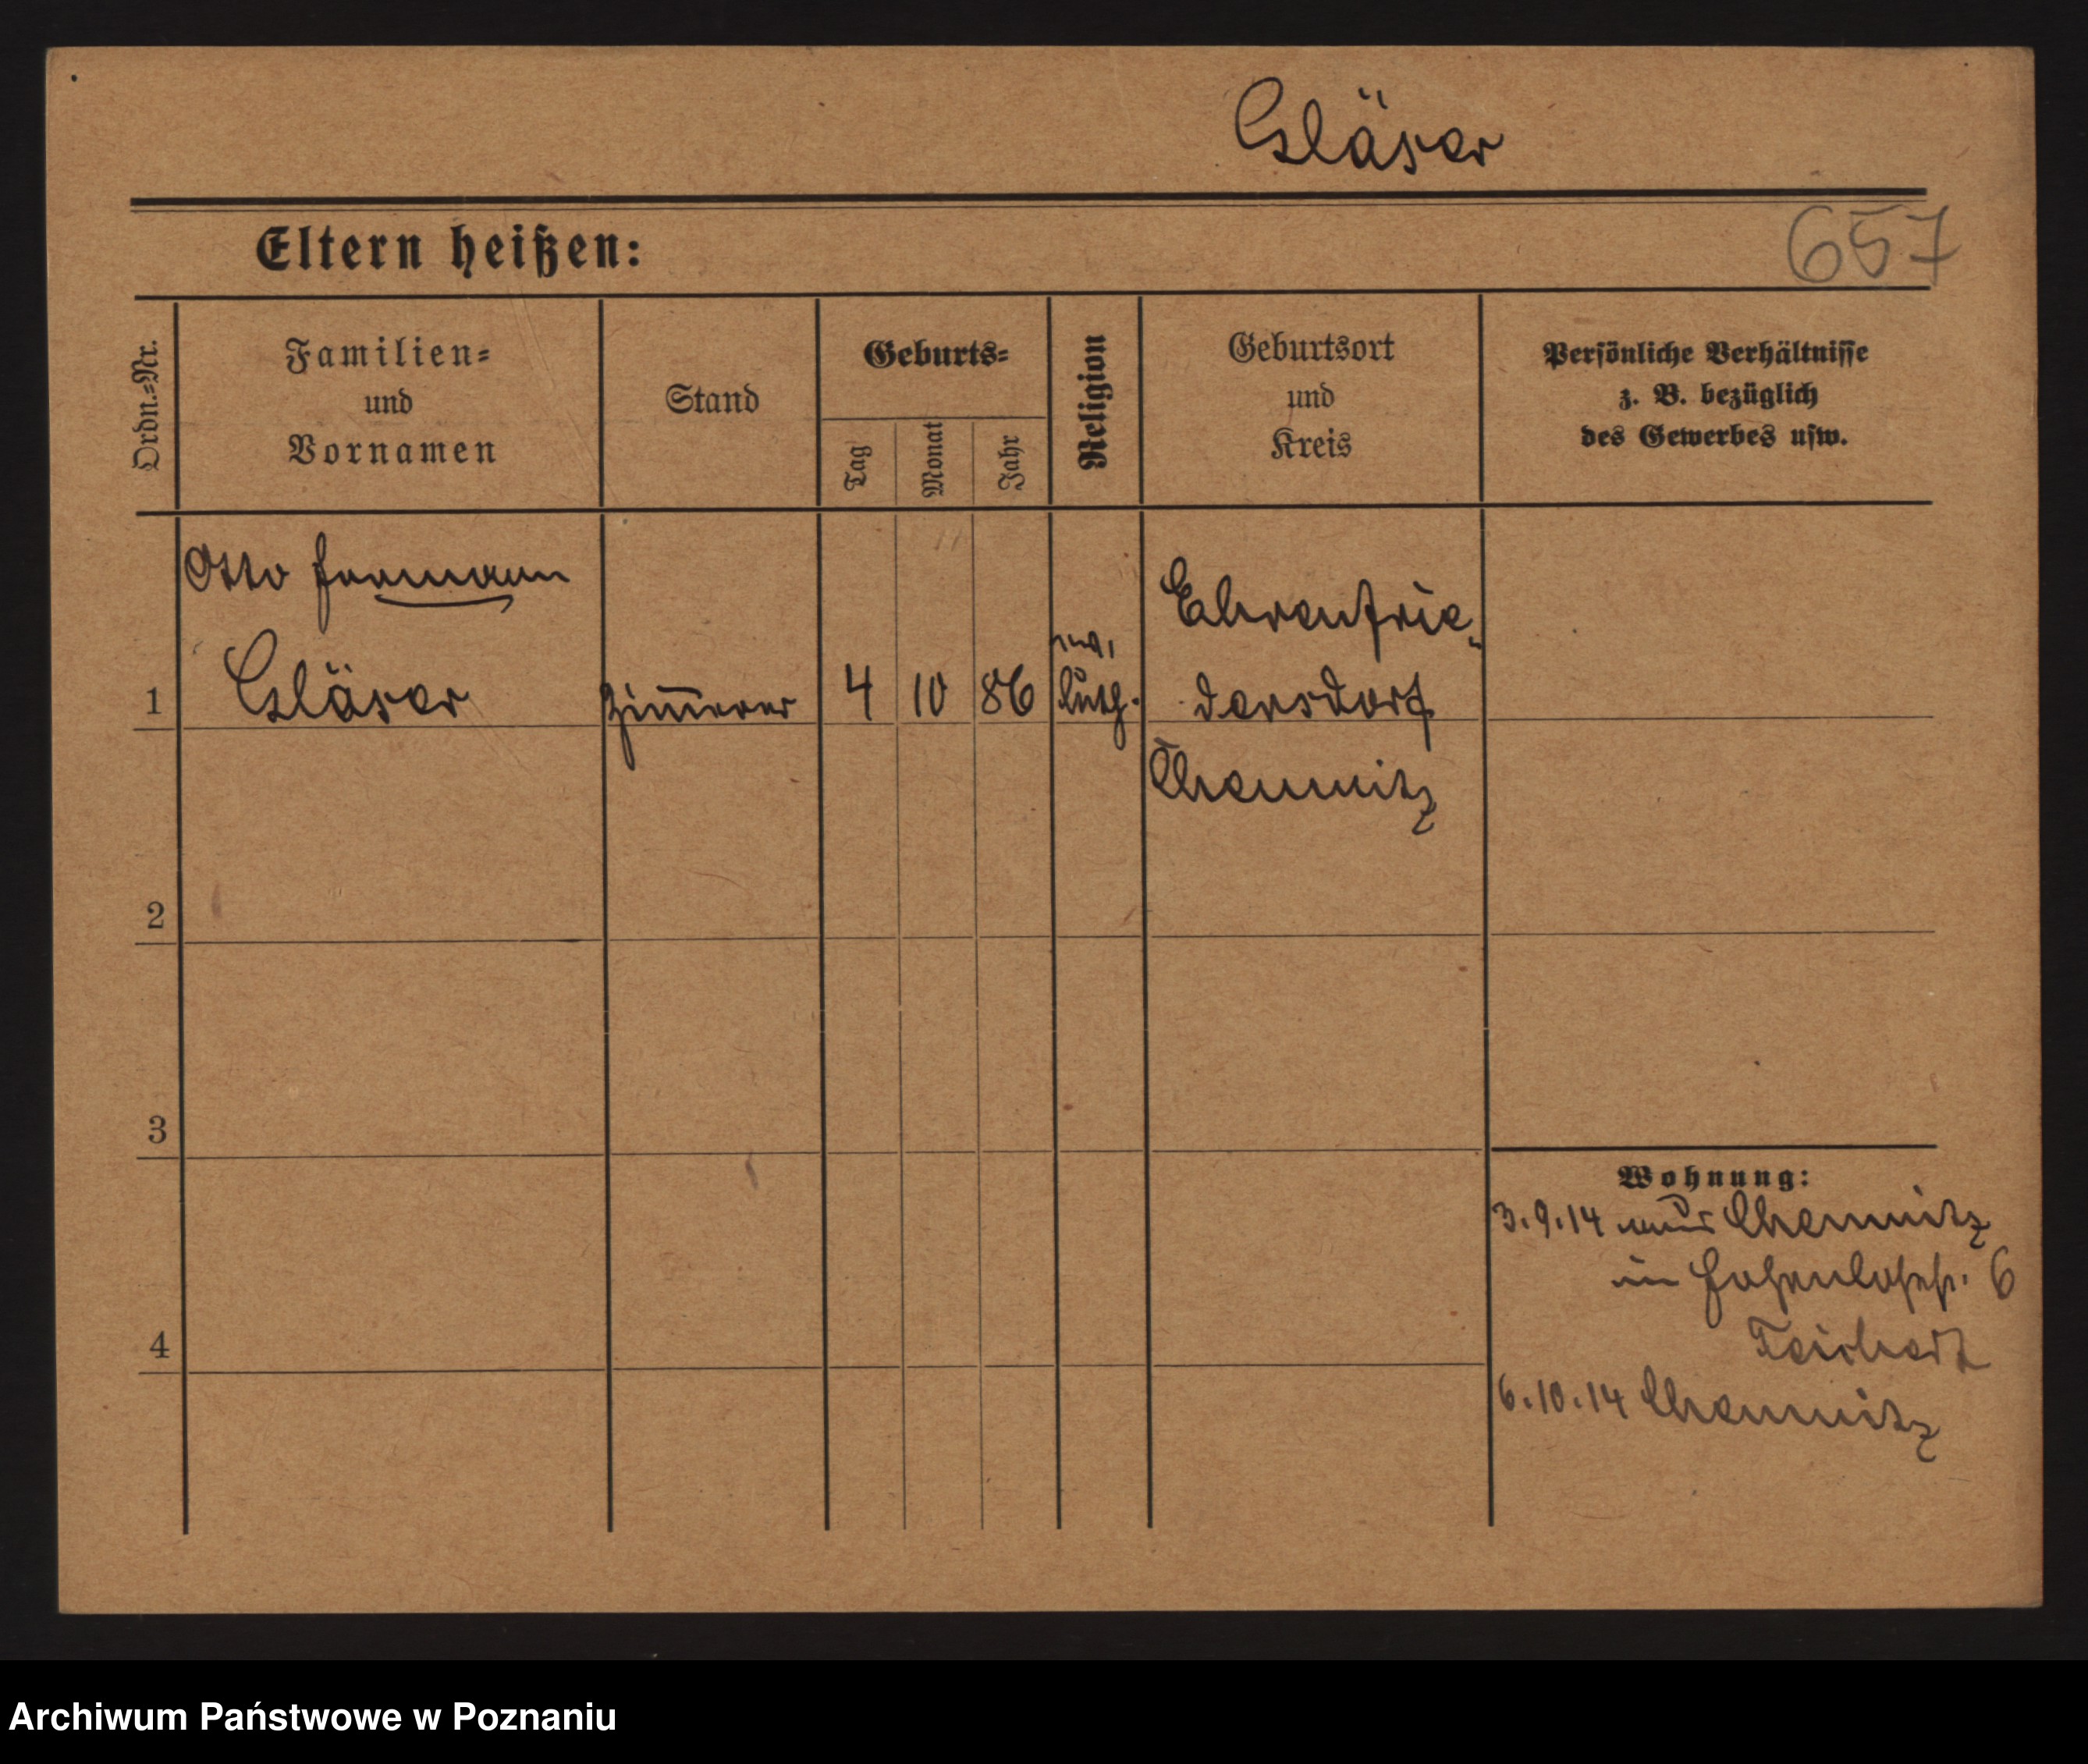 Gläser
Eltern heißen:
657
Ordn.=Nr.
Familien=
und
Vornamen
Stand
Geburts=
Tag
Monat
Jahr
Religion
Geburtsort
und
Kreis
Persönliche Verhältnisse
z. B. bezüglich
des Gewerbes usw.
Otto Hermann
Gläser
1
Zimmerer
4
10
86
ev.
luth.
Ehrenfrie-
dersdorf
Chemnitz
2
3
4
Wohnung:
3.9.14 aus Chemnitz
in Hohenlohestr. 6
Teichert
6.10.14 Chemnitz
Archiwum Państwowe w Poznaniu